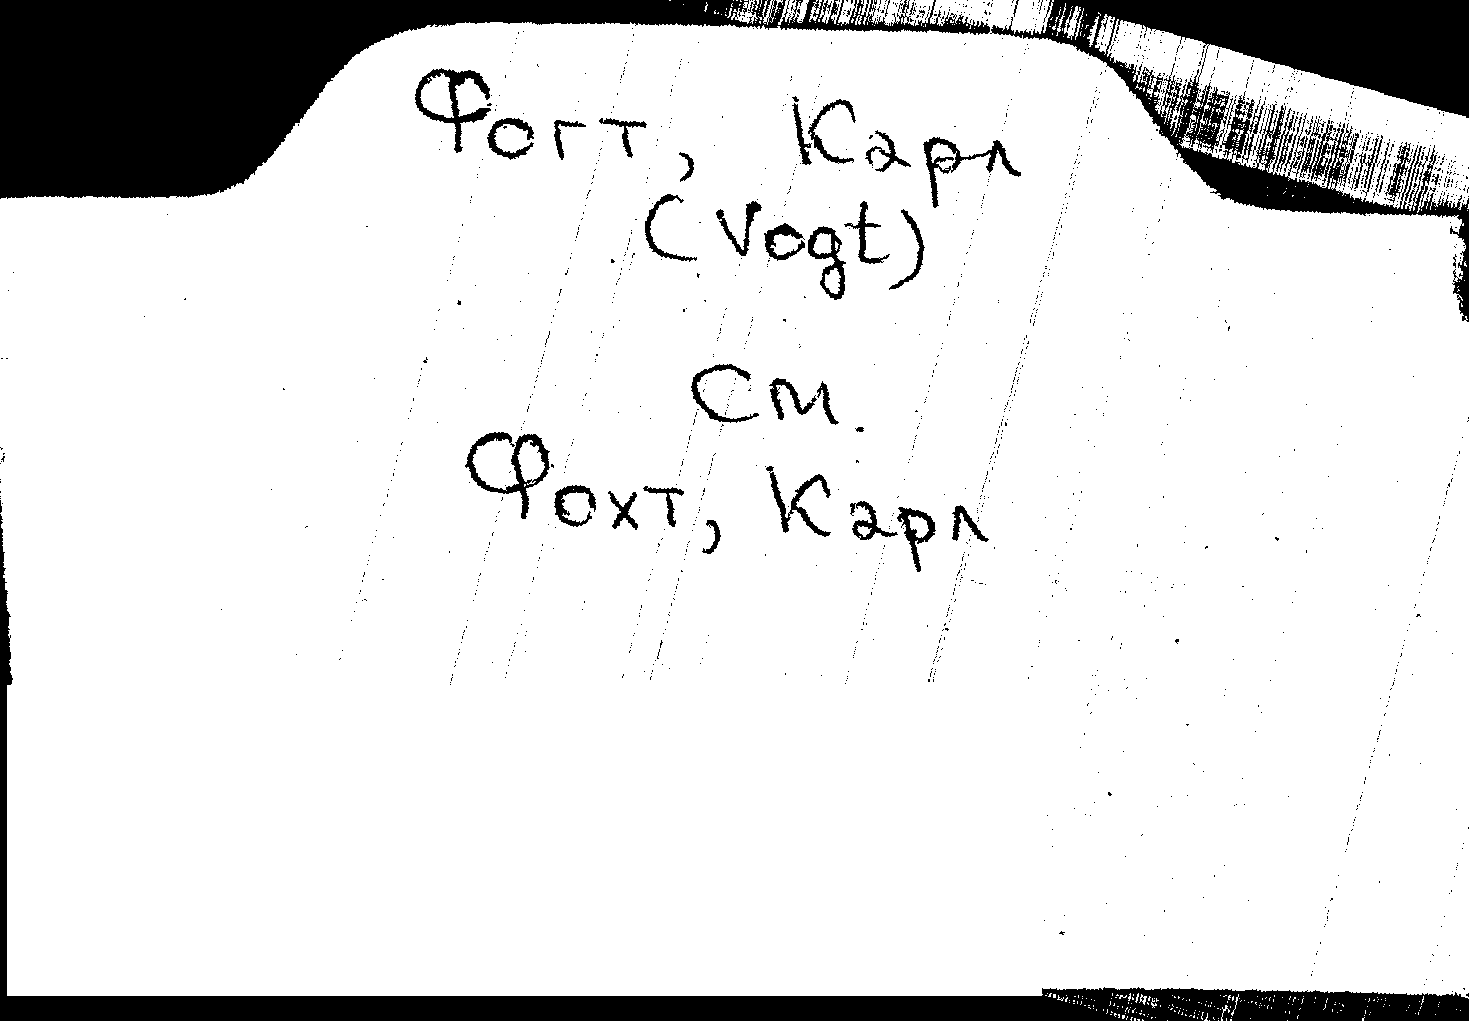 Фогт, Карл
(Vogt)
см.
Фохт, Карл